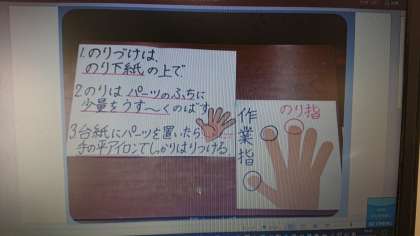 1.のりづけは、
のり下紙の上で
2のりはパーツのふちに
少量をうす〜くのばす
3台紙にパーツを置いたら
手の平アイロンでしっかりはりつける
のり指
作業指